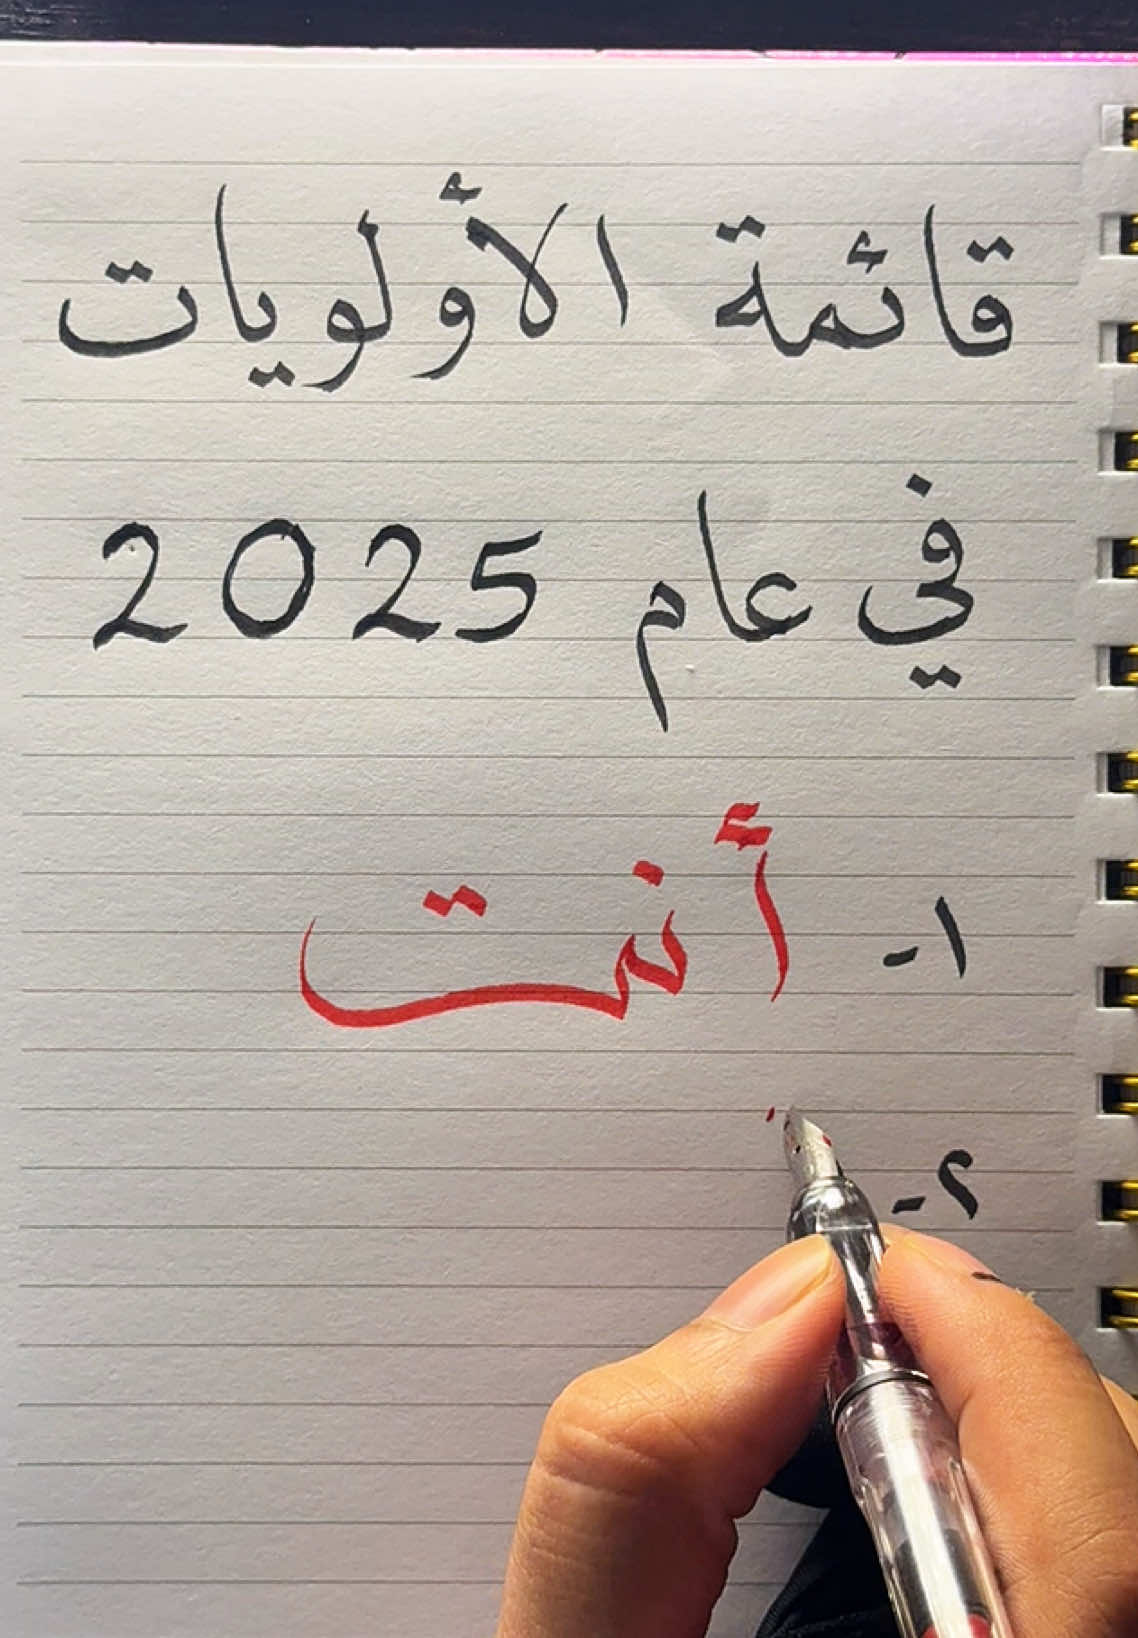 قائمة الأولويات
في عام 2025
١- أنت
٢-